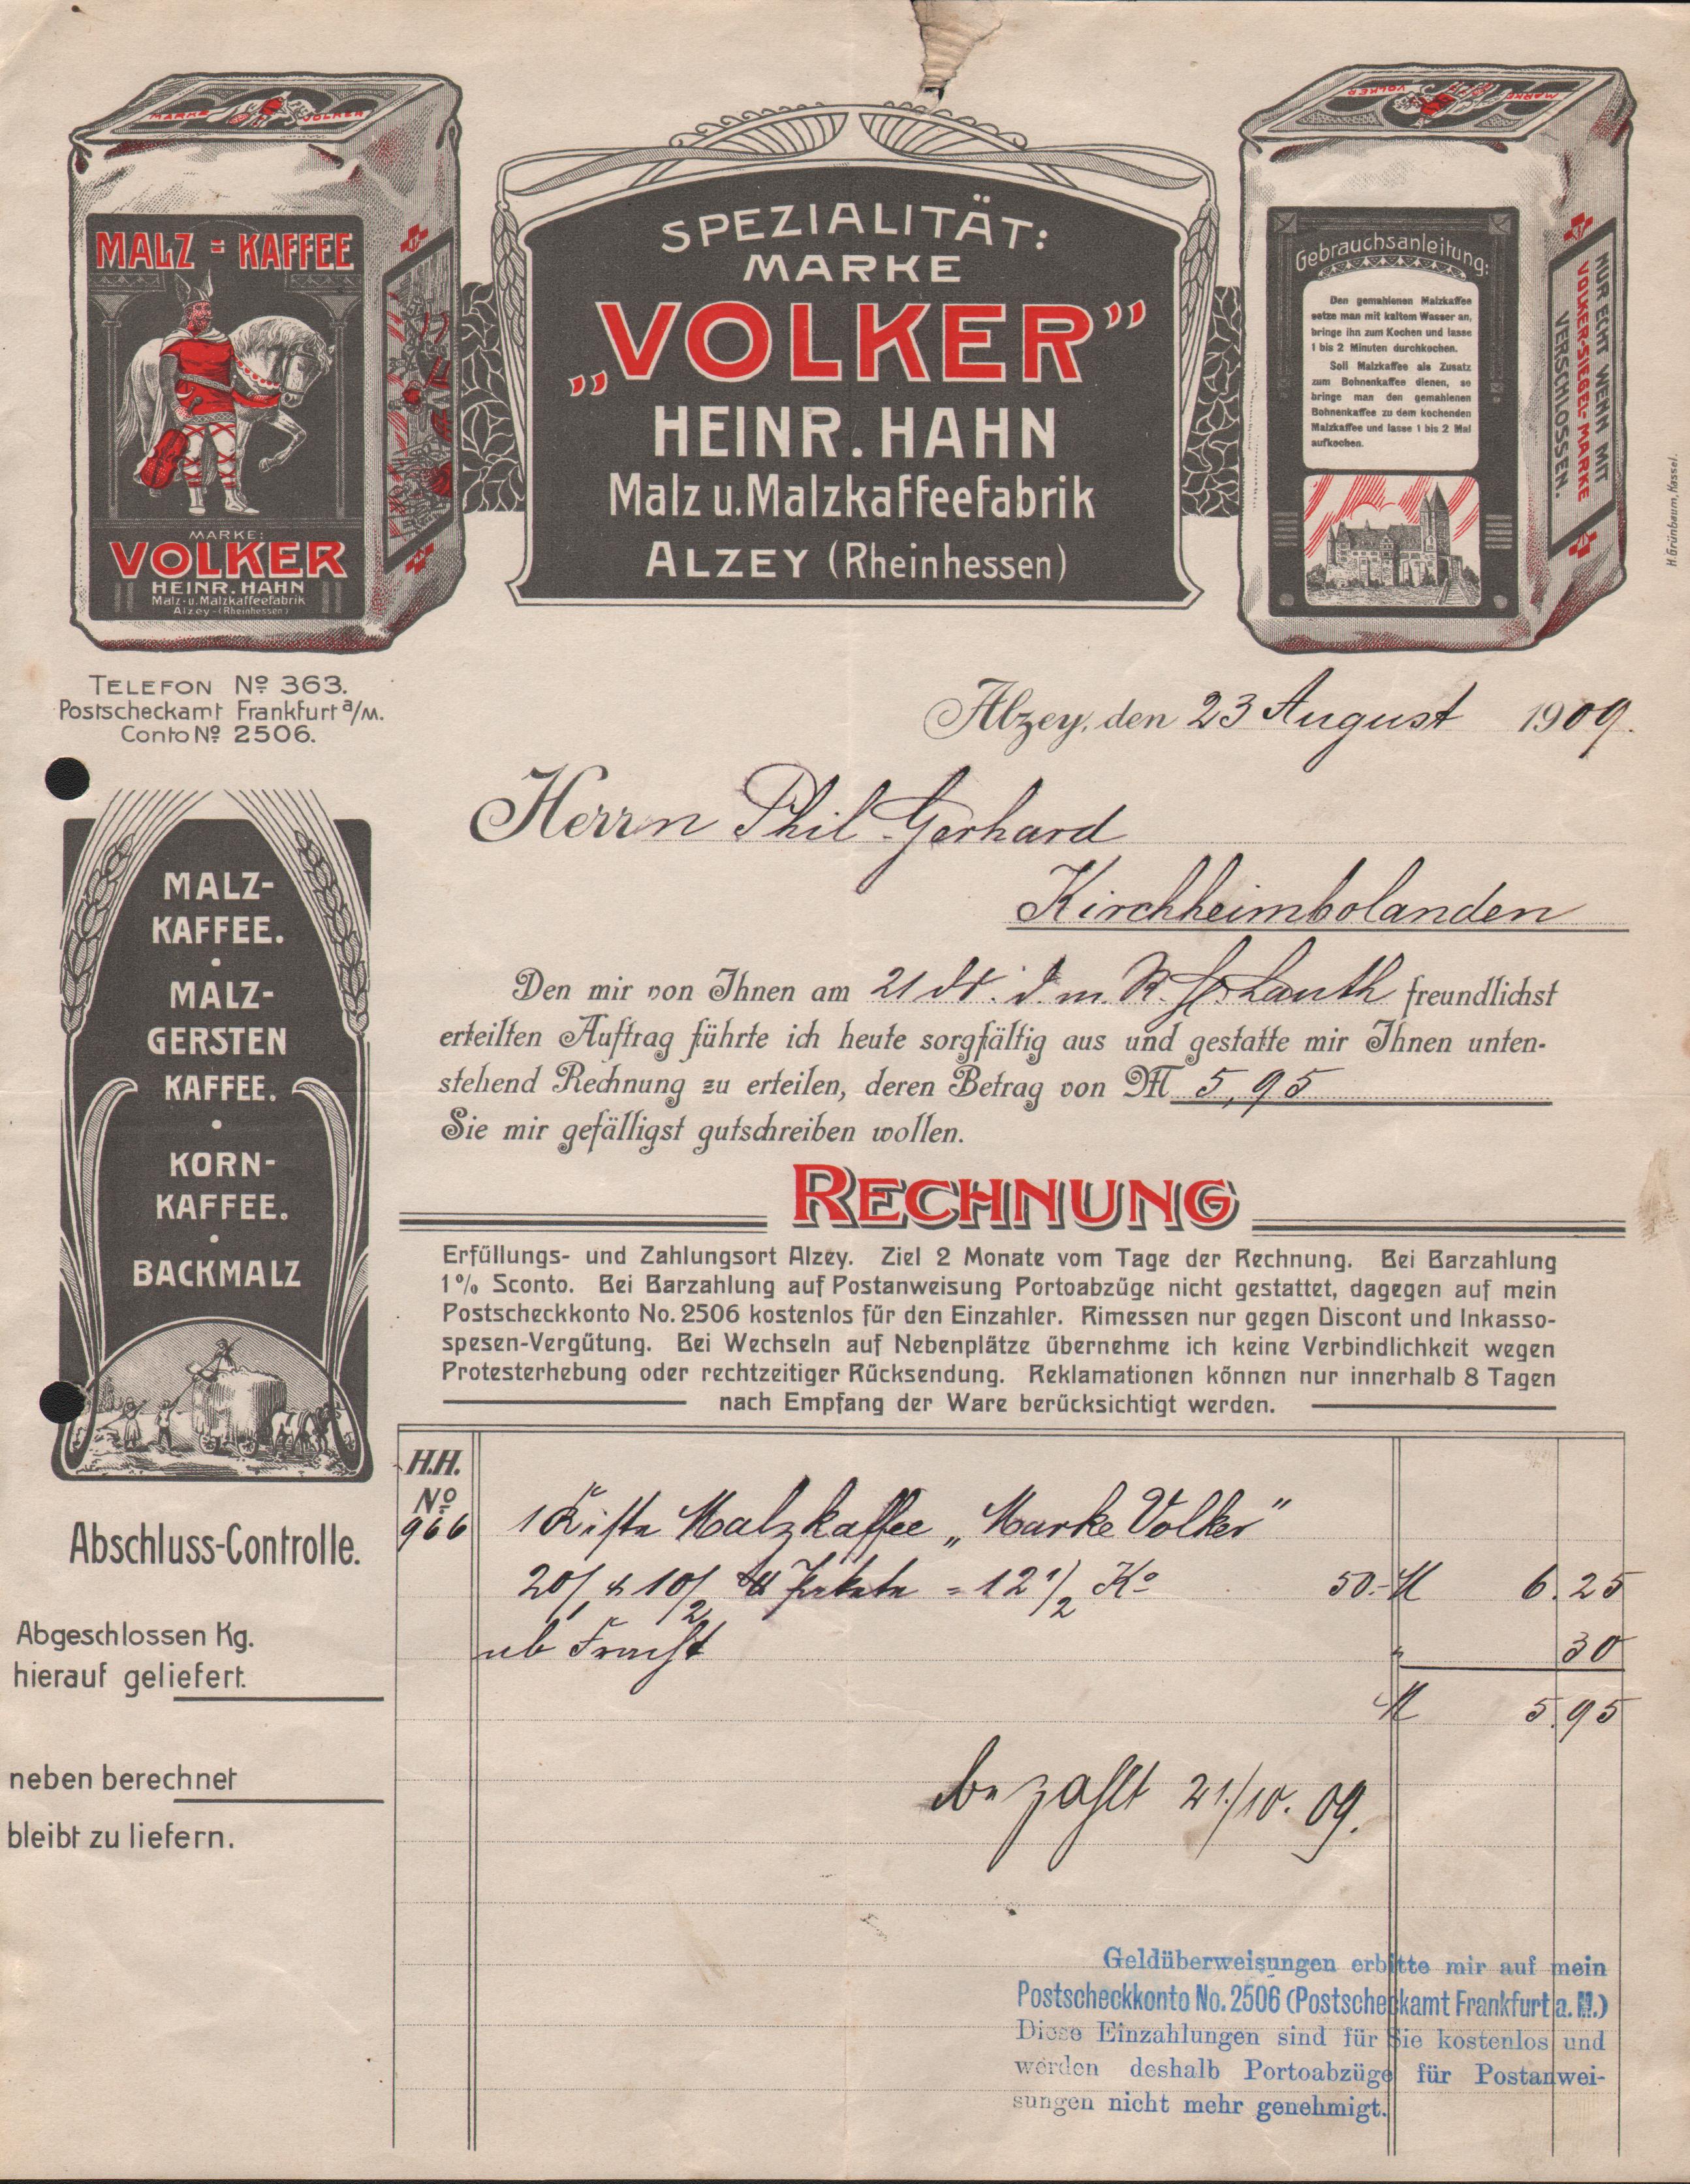 MARKE VOLKER
MALZ = KAFFEE
MARKE:
VOLKER
HEINR. HAHN
Malz- u. Malzkaffeefabrik
Alzey-(Rheinhessen)
SPEZIALITÄT:
MARKE
„VOLKER”
HEINR. HAHN
Malz u. Malzkaffeefabrik
ALZEY (Rheinhessen)
MARKE VOLKER
Gebrauchsanleitung:
Den gemahlenen Malzkaffee
setze man mit kaltem Wasser an,
bringe ihn zum Kochen und lasse
1 bis 2 Minuten durchkochen.
Soll Malzkaffee als Zusatz
zum Bohnenkaffee dienen, so
bringe man den gemahlenen
Bohnenkaffee zu dem kochenden
Malzkaffee und lasse 1 bis 2 Mal
aufkochen.
NUR ECHT WENN MIT
VOLKER-SIEGEL-MARKE
VERSCHLOSSEN.
H. Grünbaum, Kassel.
TELEFON No 363.
Postscheckamt Frankfurt a/M.
Conto No 2506.
Alzey, den 23 August 1909.
Herrn Phil. Gerhard
Kirchheimbolanden
MALZ-
KAFFEE.
MALZ-
GERSTEN
KAFFEE.
KORN-
KAFFEE.
BACKMALZ
Den mir von Ihnen am 21 ds. d. m. R. H. Lauth freundlichst
erteilten Auftrag führte ich heute sorgfältig aus und gestatte mir Ihnen unten-
stehend Rechnung zu erteilen, deren Betrag von M 5,95
Sie mir gefälligst gutschreiben wollen.
RECHNUNG
Erfüllungs- und Zahlungsort Alzey. Ziel 2 Monate vom Tage der Rechnung. Bei Barzahlung
1% Sconto. Bei Barzahlung auf Postanweisung Portoabzüge nicht gestattet, dagegen auf mein
Postscheckkonto No. 2506 kostenlos für den Einzahler. Rimessen nur gegen Discont und Inkasso-
spesen-Vergütung. Bei Wechseln auf Nebenplätze übernehme ich keine Verbindlichkeit wegen
Protesterhebung oder rechtzeitiger Rücksendung. Reklamationen können nur innerhalb 8 Tagen
nach Empfang der Ware berücksichtigt werden.
H.H.
No
966 1 Kiste Malzkaffee „Marke Volker"
20/1 & 10/2 ℔ Pakete = 12 1/2 Ko 50.- M 6.25
ab Fracht " 30
M 5.95
bezahlt 21/10. 09.
Abschluss-Controlle.
Abgeschlossen Kg.
hierauf geliefert.
neben berechnet
bleibt zu liefern.
Geldüberweisungen erbitte mir auf mein
Postscheckkonto No. 2506 (Postscheckamt Frankfurt a. M.)
Diese Einzahlungen sind für Sie kostenlos und
werden deshalb Portoabzüge für Postanwei-
sungen nicht mehr genehmigt.